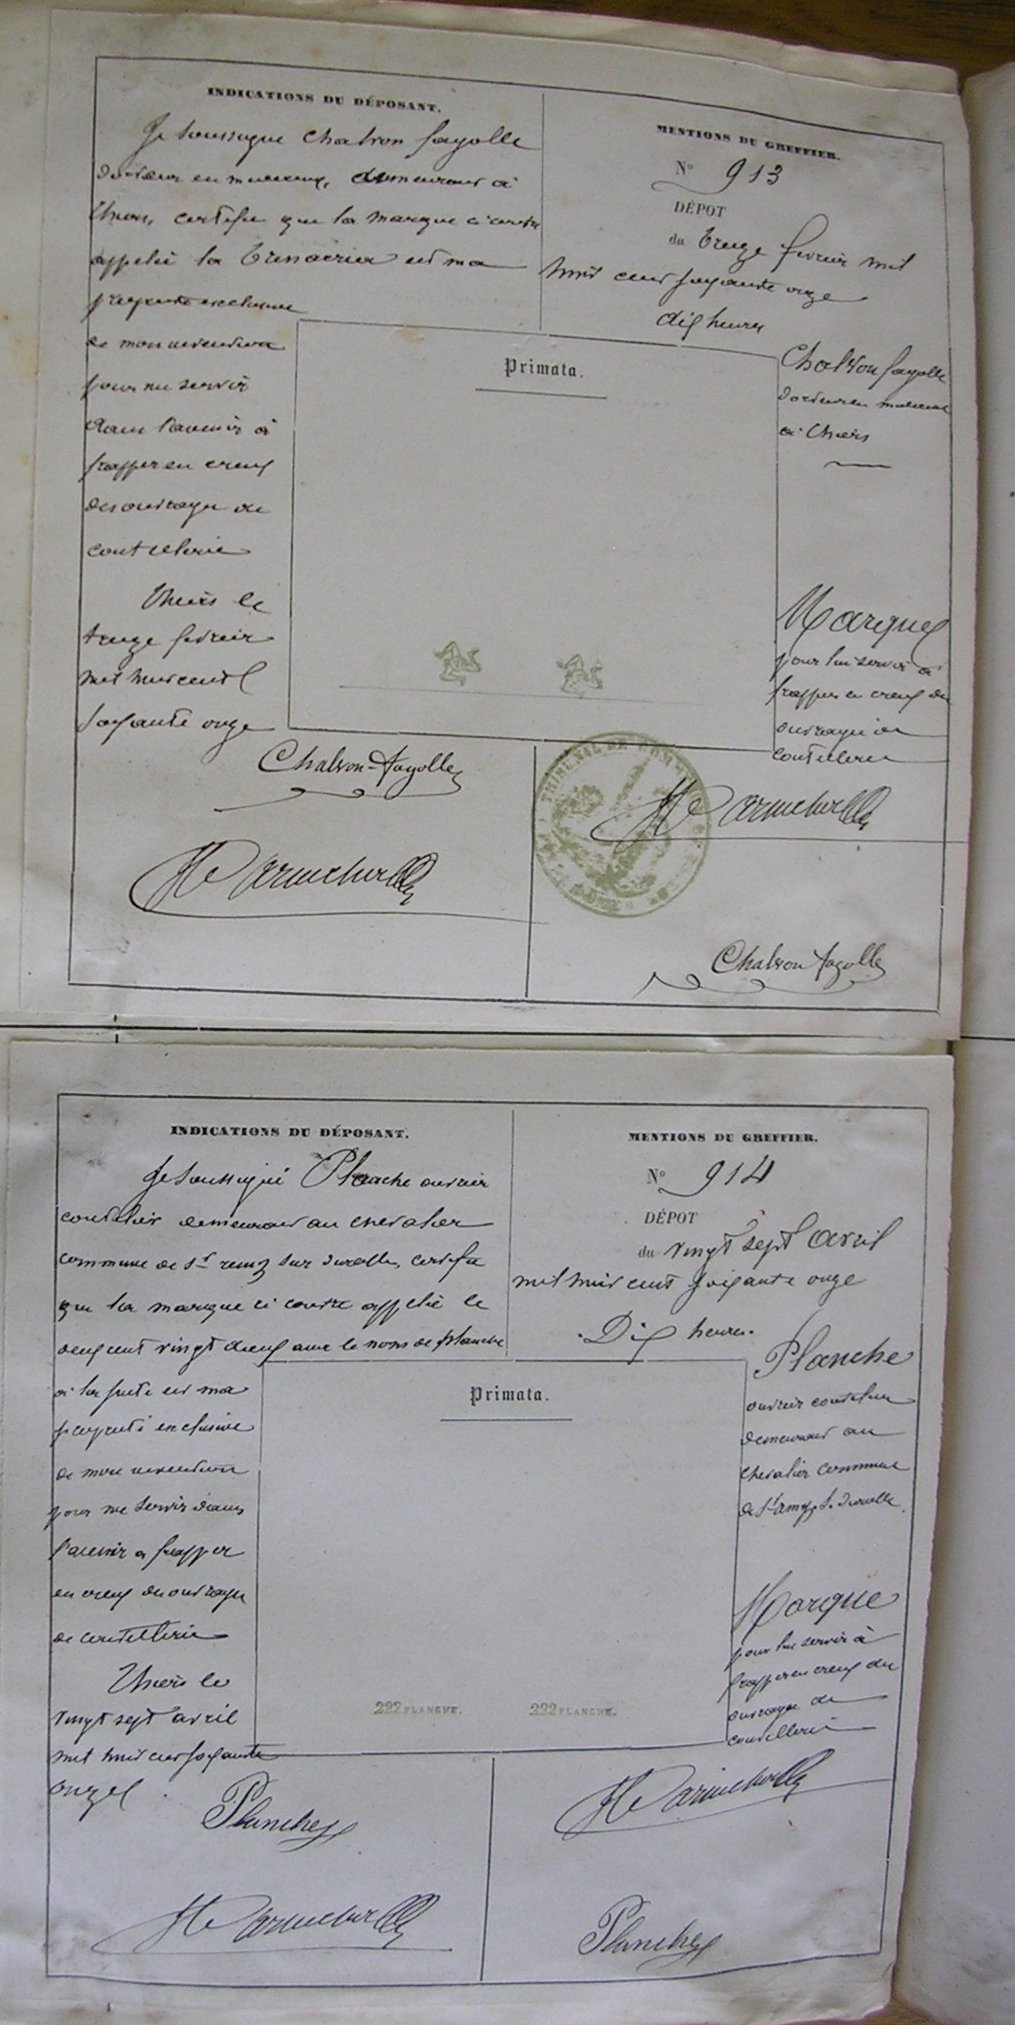 INDICATIONS DU DÉPOSANT.
Je soussigné Chatron fayolle
docteur en medecine, demeurant à
thiers, certifie que la marque ci contre
appelée la trinacria est ma
propriété exclusive
de mon invention
pour me servir
dans l'avenir à
frapper en creux
des ouvrages de
coutellerie
Thiers le
treize fevrier
mil huit cent
soixante onze
Chatron-fayolle
MENTIONS DU GREFFIER.
N° 913
DÉPOT
du treize fevrier mil
huit cent soixante onze
dix heures
Primata.
Chatron fayolle
docteur en medecine
à thiers
Marque
pour lui servir à
frapper en creux des
ouvrages de
coutellerie
TRIBUNAL DE
Chatron fayolle
INDICATIONS DU DÉPOSANT.
Je soussigné Planche ouvrier
coutelier demeurant au chevalier
commune de St remy sur durolle, certifie
que la marque ci contre appelée le
deux cent vingt deux avec le nom de planche
à la suite est ma
propriété exclusive
de mon invention
pour me servir dans
l'avenir a frapper
en creux des ouvrages
de coutellerie
Thiers le
vingt sept avril
mil huit cent soixante
onze
Planche
MENTIONS DU GREFFIER.
N° 914
DÉPOT
du vingt sept avril
mil huit cent soixante onze
Dix heures.
Primata.
222 PLANCHE. 222 PLANCHE.
Planche
ouvrier coutelier
demeurant au
chevalier commune
de St remy s. durolle
Marque
pour lui servir à
frapper en creux des
ouvrages de
coutellerie
Planche